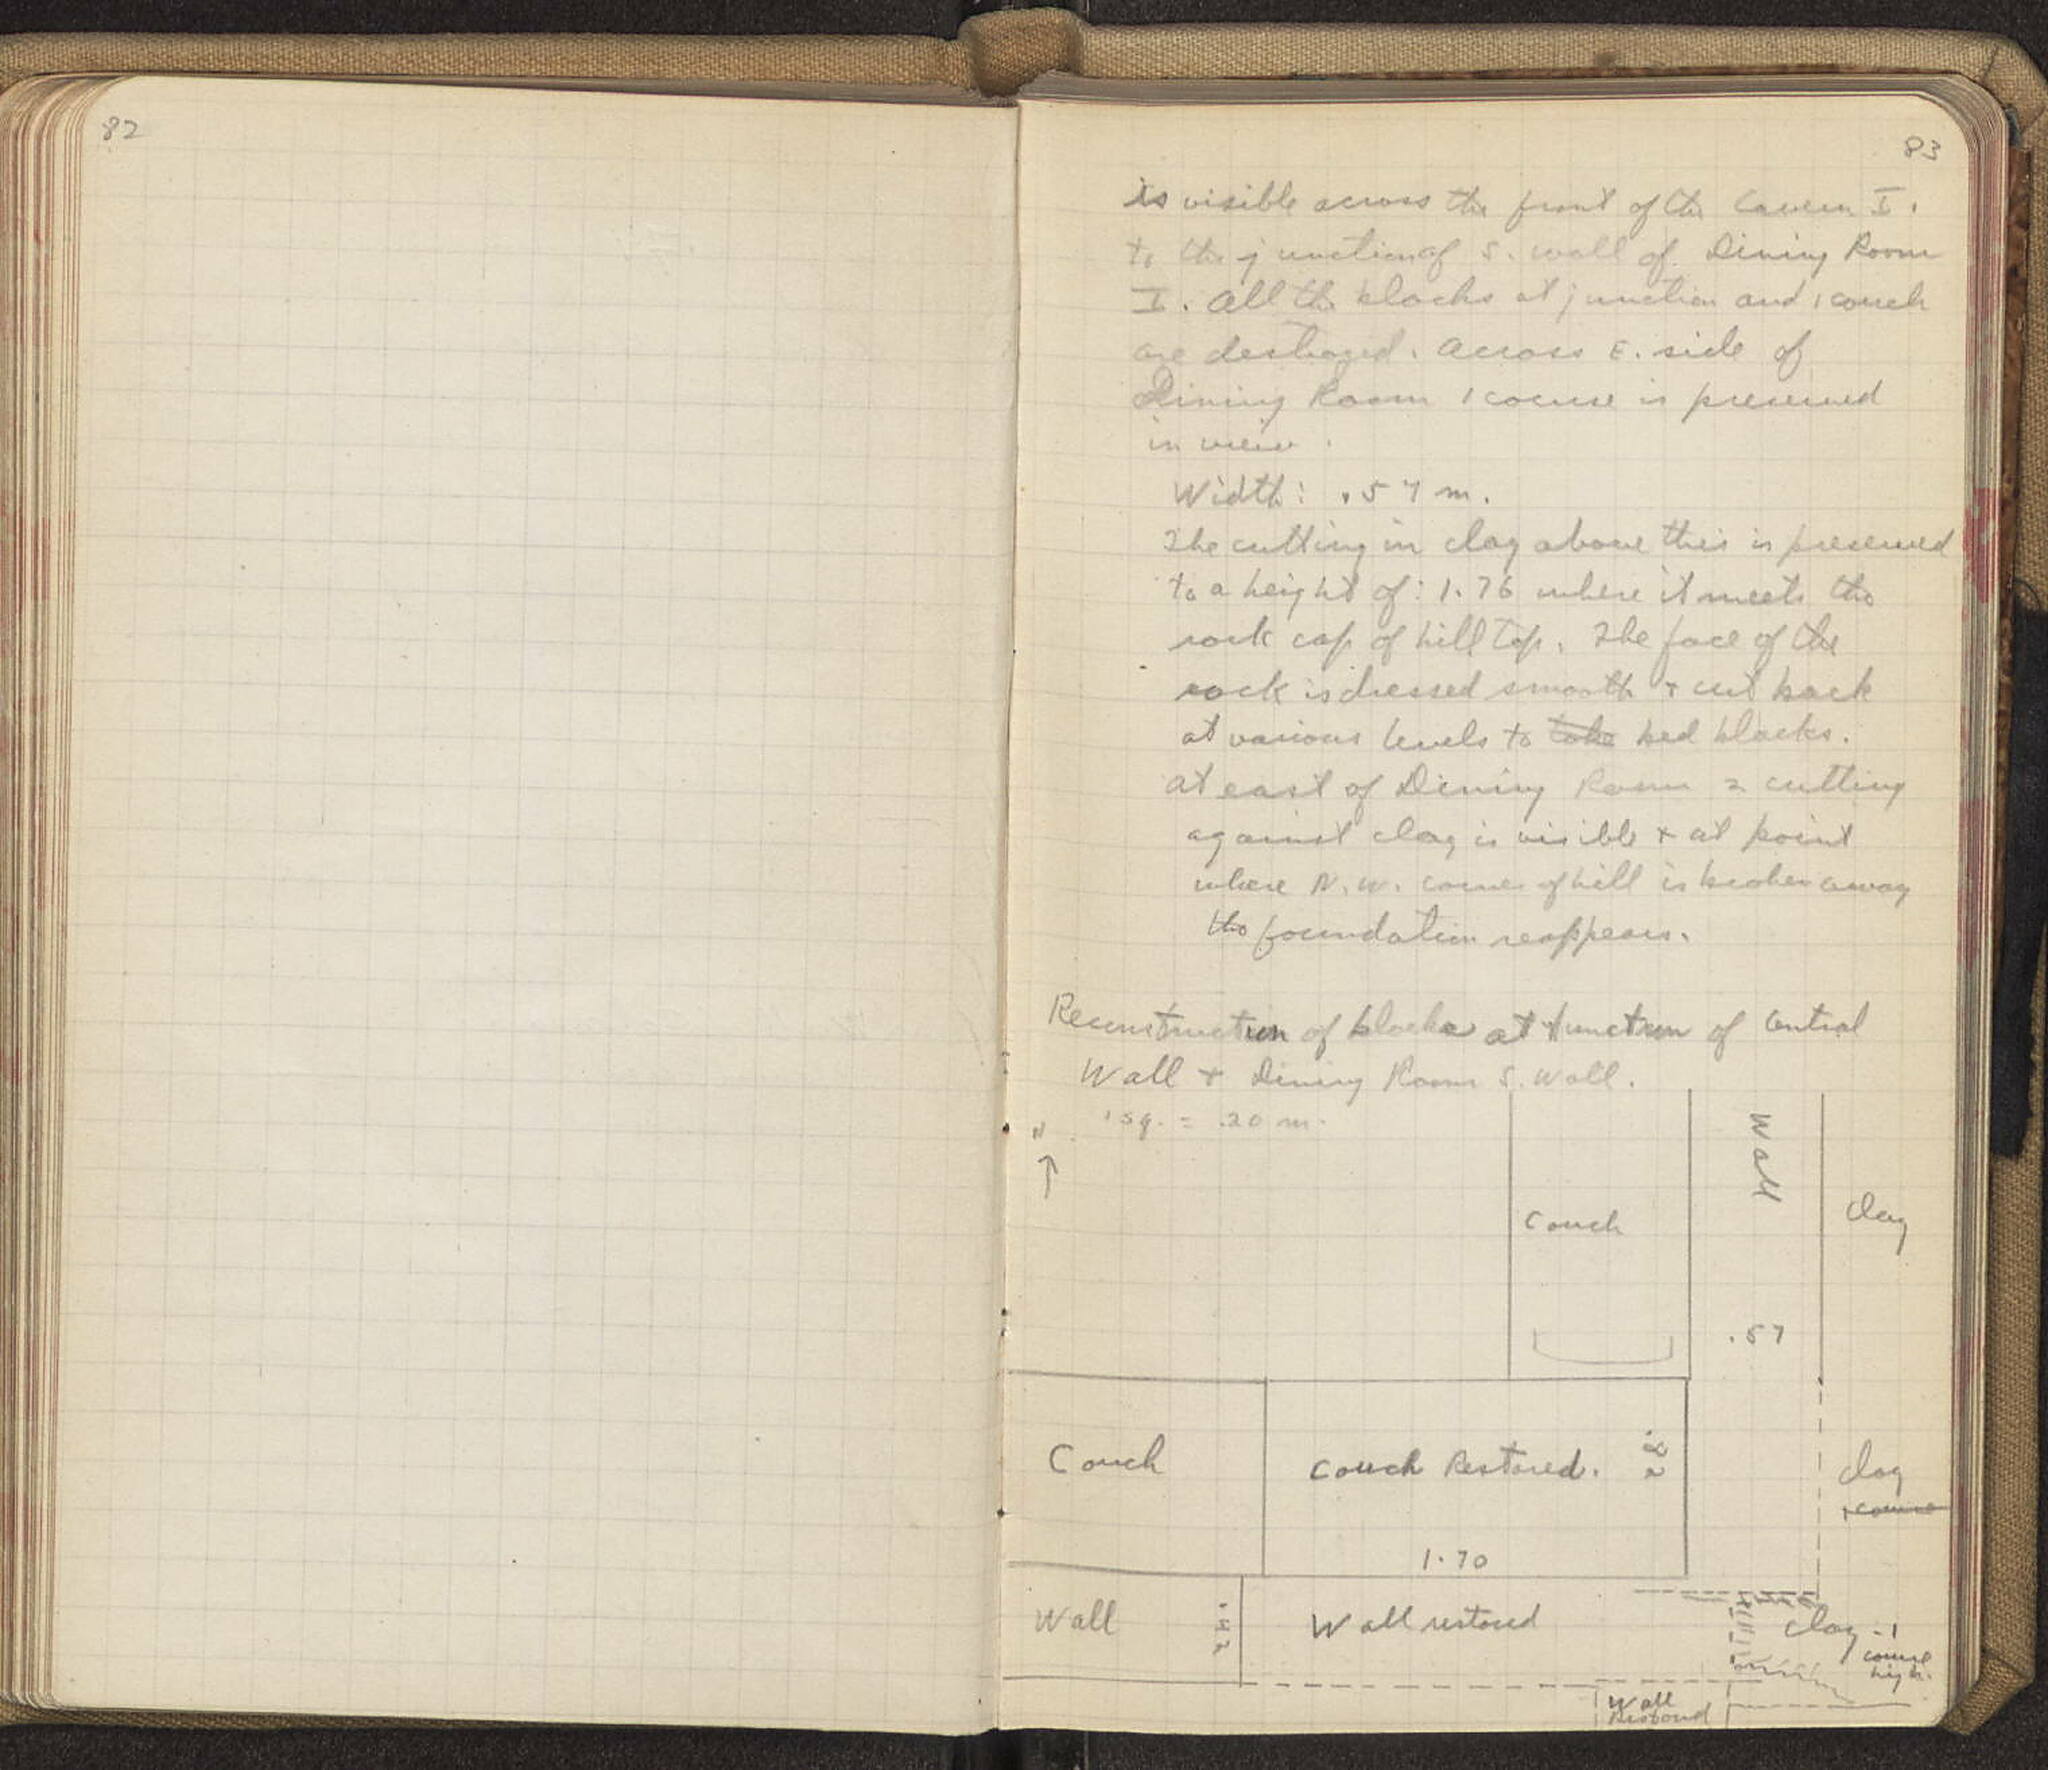 82
83
is visible across the front of the Cavern I.
to the junction of S. wall of Dining Room
I. All the blocks at junction and 1 couch
are destroyed. Across E. side of
Dining Room 1 course is preserved
in view.
Width: .57 m.
The cutting in clay above this is preserved
to a height of: 1.76 where it meets the
rock cap of hill top. The face of the
rock is dressed smooth + cut back
at various levels to take bed blocks.
At east of Dining Room 2 cutting
against clay is visible + at point
where N.W. corner of hill is broken away
the foundation reappears.
Reconstruction of blocks at junction of Central
Wall + Dining Room S. Wall.
1 sq. = .20 m.
N
Wall
Couch
Clay
.57
Couch
Couch Restored.
.82
Clay
1 course
1.70
Wall
Wall restored
Clay - 1
course
high.
Wall
Restored